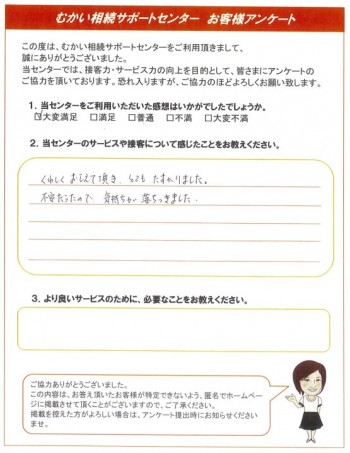 むかい相続サポートセンター お客様アンケート
この度は、むかい相続サポートセンターをご利用頂きまして、
誠にありがとうございました。
当センターでは、接客力・サービス力の向上を目的として、皆さまにアンケートの
ご協力を頂いております。恐れ入りますが、ご協力のほどよろしくお願い致します。
1．当センターをご利用いただいた感想はいかがでしたでしょうか。
☑大変満足 □満足 □普通 □不満 □大変不満
2．当センターのサービスや接客について感じたことをお教えください。
くわしくおしえて頂き、とてもたすかりました。
不安だったので、気持ちが落ちつきました。
3．より良いサービスのために、必要なことをお教えください。
ご協力ありがとうございました。
この内容は、お答え頂いたお客様が特定できないよう、匿名でホームペー
ジに掲載させて頂くことがございますので、ご了承ください。
掲載を控えた方がよろしい場合は、アンケート提出時にお知らせください
ませ。